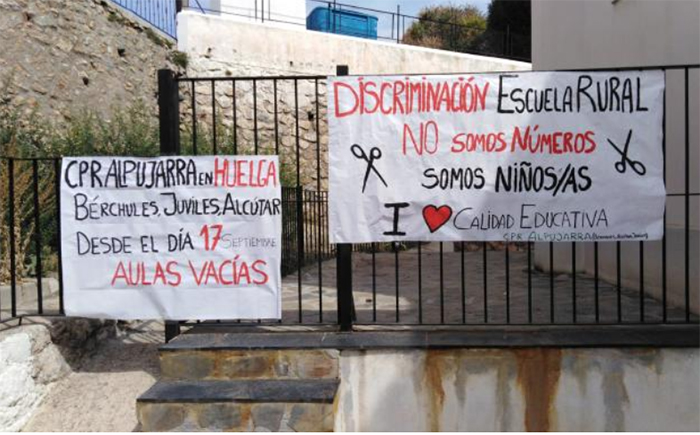 CPR ALPUJARRA EN HUELGA
BÉRCHULES, JUVILES, ALCÚTAR
DESDE EL DÍA 17 SEPTIEMBRE
AULAS VACÍAS
DISCRIMINACIÓN ESCUELA RURAL
NO SOMOS NÚMEROS
SOMOS NIÑOS/AS
I ❤ CALIDAD EDUCATIVA
CPR ALPUJARRA